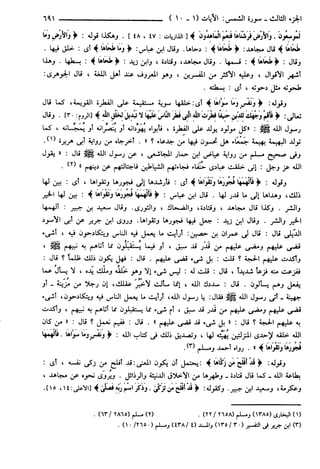 الجزء الثالث - سورة الشمس: الآيات (١ - ١٠) ٦٩١
لَمُوسِعُونَ . وَالْأَرْضَ فَرَشْنَاهَا فَنِعْمَ الْمَاهِدُونَ﴾ [الذاريات: ٤٧ ، ٤٨] . وهكذا قوله : ﴿وَالْأَرْضِ وَمَا
طَحَاهَا﴾ قال مجاهد : ﴿طَحَاهَا﴾ : دحاها. وقال ابن عباس: ﴿وَمَا طَحَاهَا﴾ أي : خلق فيها .
وقال : ﴿طَحَاهَا﴾ : قسمها . وقال مجاهد، وقتادة ، وابن زيد : ﴿طَحَاهَا﴾ : بسطها . وهذا
أشهر الأقوال ، وعليه الأكثر من المفسرين ، وهو المعروف عند أهل اللغة ، قال الجوهري:
طحوته مثل دحوته ، أي : بسطته .
وقوله: ﴿وَنَفْسٍ وَمَا سَوَّاهَا﴾ أي : خلقها سوية مستقيمة على الفطرة القويمة، كما قال
تعالى: ﴿فَأَقِمْ وَجْهَكَ لِلدِّينِ حَنِيفًا فِطْرَتَ اللَّهِ الَّتِي فَطَرَ النَّاسَ عَلَيْهَا لَا تَبْدِيلَ لِخَلْقِ اللَّهِ﴾ [الروم: ٣٠]. وقال
رسول الله ﷺ : «كل مولود يولد على الفطرة ، فأبواه يُهَوِّدانه أو يُنَصِّرانه أو يُمَجِّسانه ، كما
تولد البهيمة بهيمة جَمْعَاء هل تحسون فيها من جدعاء ؟ » . أخرجاه من رواية أبي هريرة (١).
وفى صحيح مسلم من رواية عياض ابن حمار المجاشعي ، عن رسول الله ﷺ قال : « يقول
الله عز وجل : إني خلقت عبادي حُنَفَاء فجاءتهم الشياطين فاجتالتهم عن دينهم » (٢) .
وقوله : ﴿فَأَلْهَمَهَا فُجُورَهَا وَتَقْوَاهَا﴾ أي : فأرشدها إلى فجورها وتقواها ، أي : بين لها
ذلك، وهداها إلى ما قدر لها . قال ابن عباس : ﴿فَأَلْهَمَهَا فُجُورَهَا وَتَقْوَاهَا﴾ : بين لها الخير
والشر . وكذا قال مجاهد ، وقتادة ، والضحاك ، والثوري. وقال سعيد بن جبير : ألهمها
الخير والشر. وقال ابن زيد : جعل فيها فجورها وتقواها. وروى ابن جرير عن أبي الأسود
الدِّيلي قال : قال لى عمران بن حصين: أرأيت ما يعمل فيه الناس ويتكادحون فيه ، أشىء
قضى عليهم ومضى عليهم من قَدَر قد سبق ، أو فيما يُسْتَقبَلُون مما أتاهم به نبيهم ﷺ ،
وأكدت عليهم الحجة ؟ قلت : بل شىء قضى عليهم . قال : فهل يكون ذلك ظلماً ؟ قال :
ففزعت منه فزعاً شديداً ، قال : قلت له : ليس شىء إلا وهو خَلْقُه ومِلْكُ يَده ، لا يسألُ عما
يفعل وهم يسألون . قال : سددك الله ، إنما سألت لأخبر عقلك، إن رجلا من مُزينة ـ أو
جهينة ـ أتى رسول الله ﷺ فقال: يا رسول الله، أرأيت ما يعمل الناس فيه ويتكادحون، أشىء
قضى عليهم ومضى عليهم من قدر قد سبق ، أم شىء مما يستقبلون مما أتاهم به نبيهم ، وأكدت
به عليهم الحجة ؟ قال : « بل شىء قد قضى عليهم ». قال : ففيم نعمل ؟ قال : « من كان
الله خلقه لإحدى المنزلتين يُهَيِّئه لها ، وتصديق ذلك في كتاب الله : ﴿وَنَفْسٍ وَمَا سَوَّاهَا . فَأَلْهَمَهَا
فُجُورَهَا وَتَقْوَاهَا﴾ » . رواه أحمد ومسلم (٣).
وقوله: ﴿قَدْ أَفْلَحَ مَن زَكَّاهَا﴾ : يحتمل أن يكون المعنى: قد أفلح من زكى نفسه ، أى :
بطاعة الله ـ كما قال قتادة ـ وطهرها من الأخلاق الدنيئة والرذائل . ويُروَى نحوه عن مجاهد ،
وعكرمة، وسعيد ابن جبير. وكقوله: ﴿قَدْ أَفْلَحَ مَن تَزَكَّىٰ . وَذَكَرَ اسْمَ رَبِّهِ فَصَلَّىٰ﴾ [الأعلى: ١٤، ١٥].
(١) البخارى (١٣٨٥) ومسلم (٢٦٥٨ / ٢٢) . (٢) مسلم (٢٨٦٥ / ٦٣) .
(٣) ابن جرير فى التفسير (٣٠ / ١٣٥) والمسند (٤ / ٤٣٨) ومسلم (٢٦٥٠ / ١٠) .